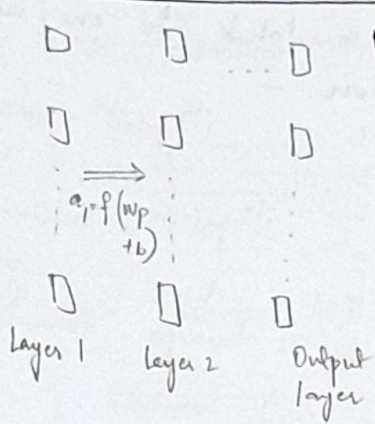 a₁ = f(wp
+b)
Layer 1
Layer 2
Output
layer